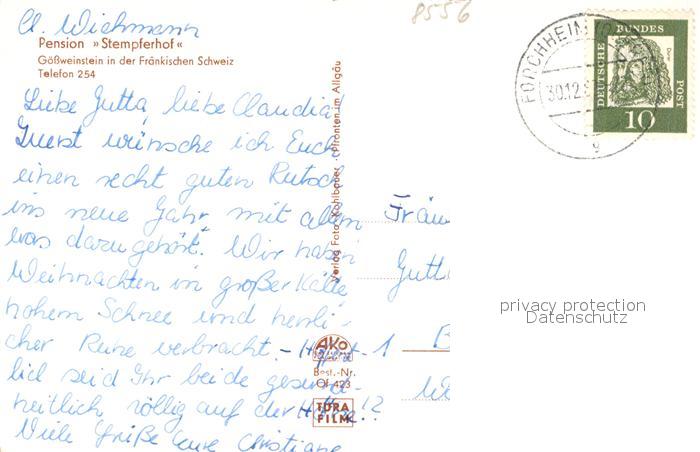 Cl. Wichmann
8556
Pension »Stempferhof«
Gößweinstein in der Fränkischen Schweiz
Telefon 254
Liebe Jutta, liebe Claudia
Zuerst wünsche ich Euch
einen recht guten Rutsch
ins neue Jahr mit allem
was dazu gehört. Wir haben
Weihnachten in großer Kälte
hohem Schnee und herrli-
cher Ruhe verbracht. - Hoffent-
lich seid Ihr beide gesund-
heitlich völlig auf der Höhe!?
Viele Grüße Eure Christiane
Verlag Foto Kohlbauer, Pfronten im Allgäu
AKO
Best.-Nr.
Of 423
TURA
FILM
FORCHHEIM
30.12.
g
DEUTSCHE BUNDESPOST
Dürer
10
Fräu
Jutta
1 B
privacy protection
Datenschutz